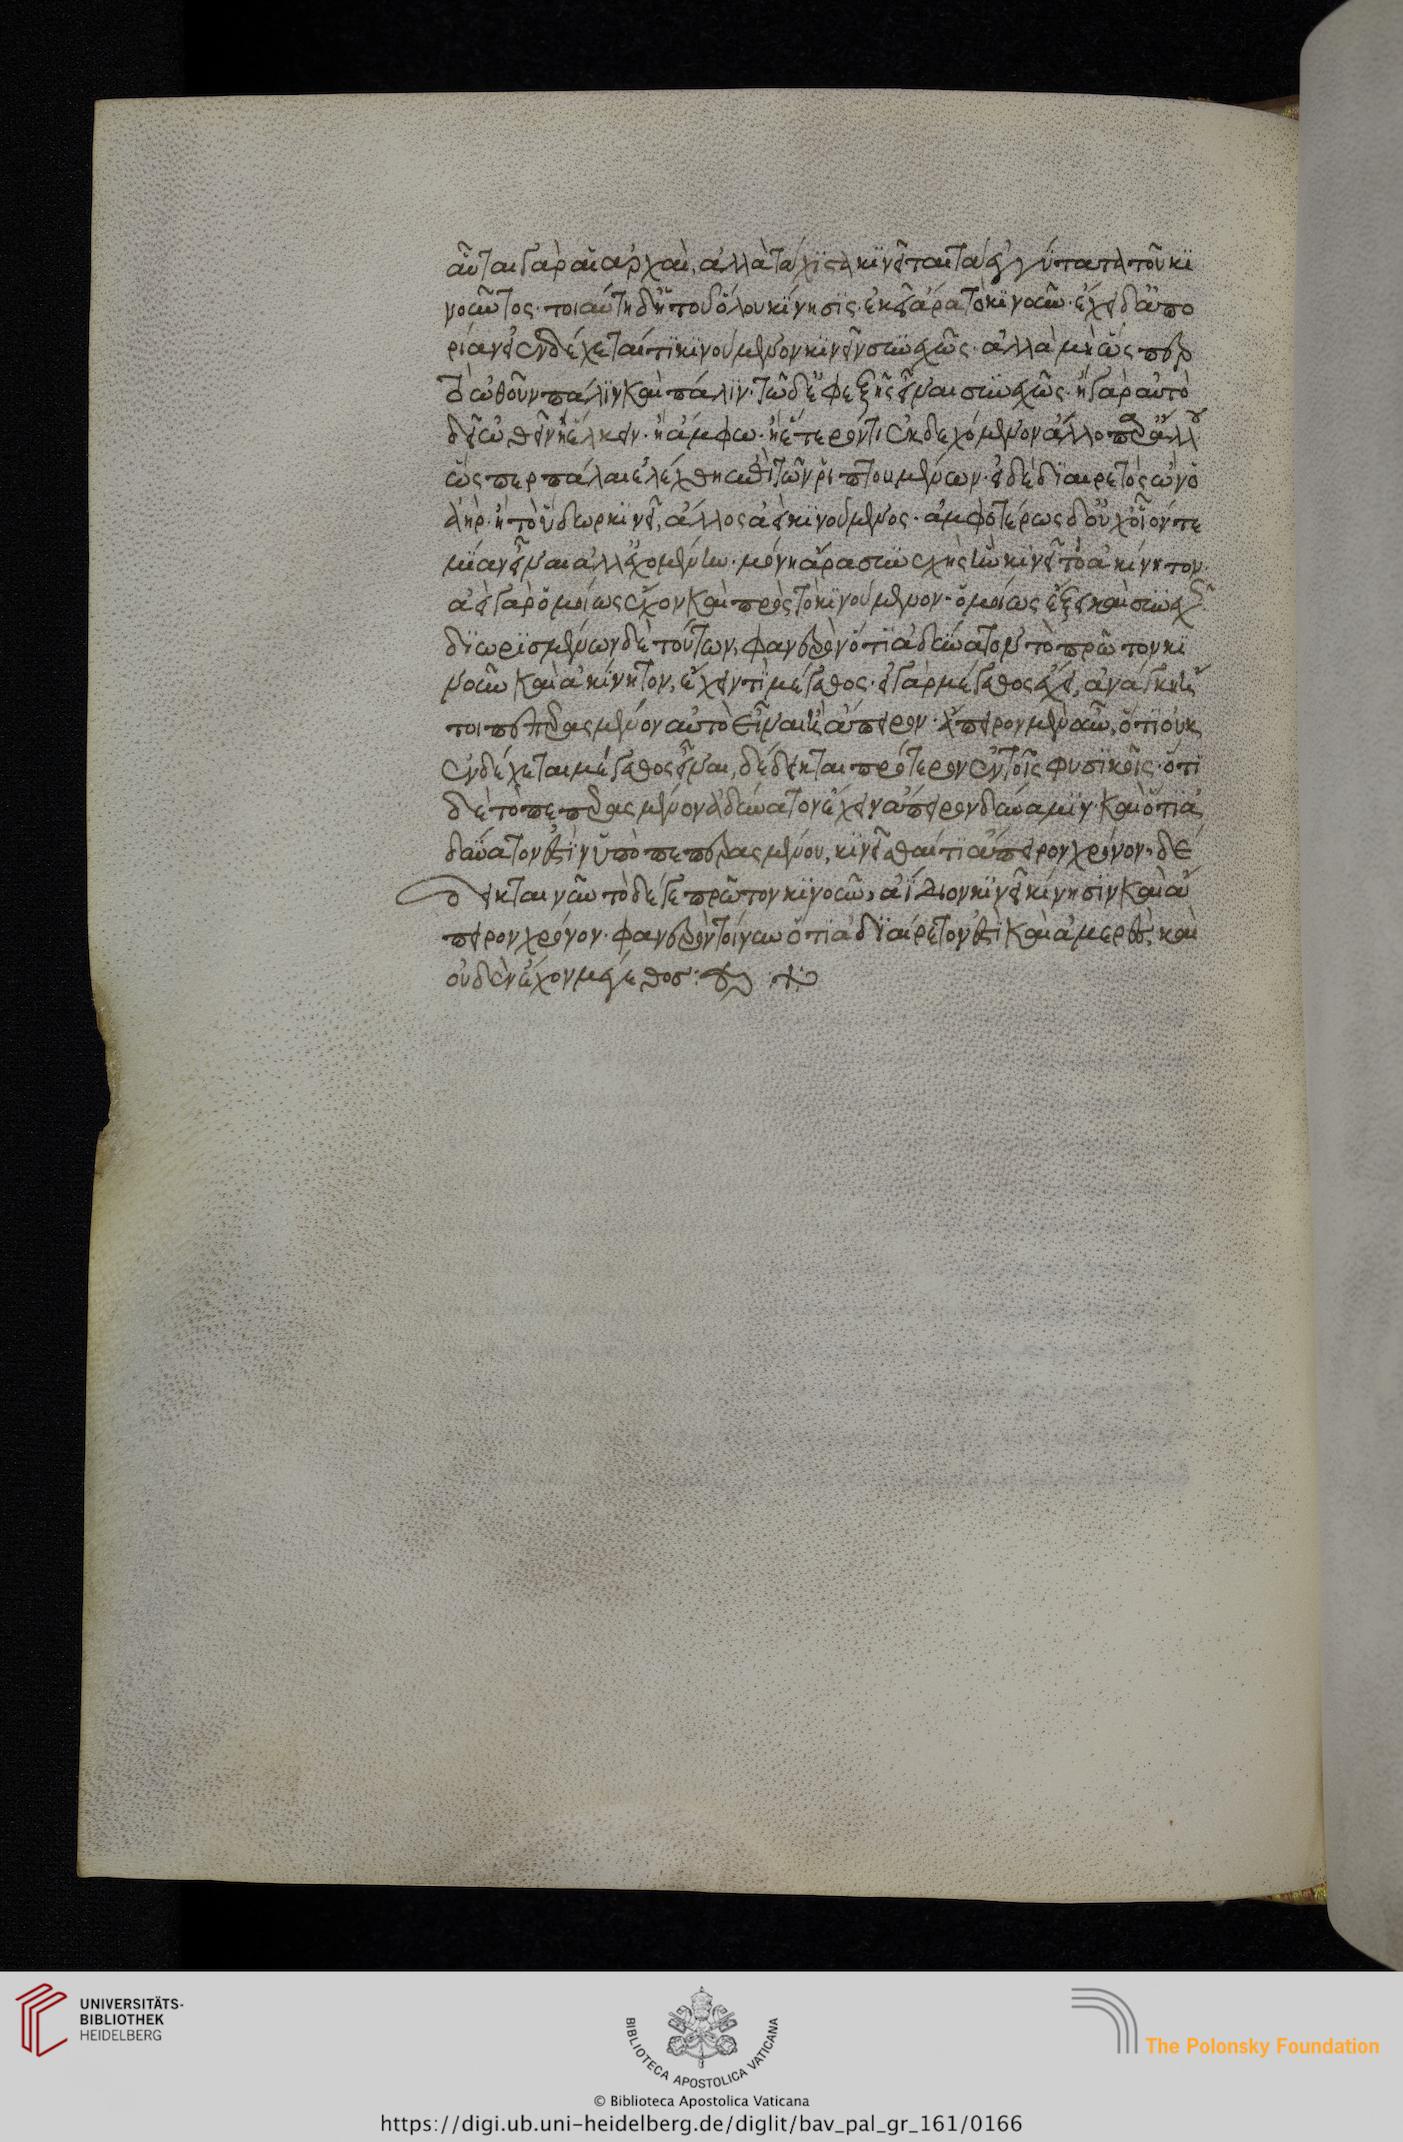 αὗται γὰρ αἱ ἀρχαί, ἀλλὰ τάχιστα κινεῖται τὰ ἐγγύτατα τοῦ κι
νοῦντος· τοιαύτη δ' ἡ τοῦ ὅλου κίνησις· ἐκεῖ ἄρα τὸ κινοῦν· ἔχει δ' ἀπο
ρίαν εἰ ἐνδέχεταί τι κινούμενον κινεῖν συνεχῶς· ἀλλὰ μὴ ὥσπερ
τὸ ὠθοῦν πάλιν καὶ πάλιν· τῷ δ' ἐφεξῆς εἶναι συνεχῶς· ἢ γὰρ αὐτὸ
δεῖ ὠθεῖν ἢ ἕλκειν· ἢ ἄμφω· ἢ ἕτερόν τι ἐκδεχόμενον ἄλλο παρ' ἄλλου
ὥσπερ πάλαι ἐλέχθη ἐπὶ τῶν ῥιπτουμένων· εἰ δὲ διαιρετὸς ὢν ὁ
ἀὴρ· ἢ τὸ ὕδωρ κινεῖ, ἄλλος ἀεὶ κινούμενος· ἀμφοτέρως δ' οὐχ οἷόν τε
μίαν εἶναι ἀλλ' ἐχομένην· μόνη ἄρα συνεχὴς ἣν κινεῖ τὸ ἀκίνητον·
ἀεὶ γὰρ ὁμοίως ἔχον καὶ πρὸς τὸ κινούμενον· ὁμοίως ἕξει καὶ συνεχῶς
διωρισμένων δὲ τούτων, φανερὸν ὅτι ἀδύνατον τὸ πρῶτον κι
νοῦν καὶ ἀκίνητον, ἔχειν τι μέγεθος· εἰ γὰρ μέγεθος ἔχει, ἀνάγκη ἤ
τοι πεπερασμένον αὐτὸ εἶναι ἢ ἄπειρον· ἄπειρον μὲν οὖν, ὅτι οὐκ
ἐνδέχεται μέγεθος εἶναι, δέδεικται πρότερον ἐν τοῖς φυσικοῖς· ὅτι
δὲ τὸ πεπερασμένον ἀδύνατον ἔχειν ἄπειρον δύναμιν· καὶ ὅτι ἀ
δύνατόν ἐστιν ὑπὸ πεπερασμένου, κινεῖσθαί τι ἄπειρον χρόνον· δέ
δεικται νῦν τὸ δέ γε πρῶτον κινοῦν, ἀΐδιον κινεῖ κίνησιν καὶ ἄ
πειρον χρόνον· φανερὸν τοίνυν ὅτι ἀδιαίρετόν ἐστι καὶ ἀμερές, καὶ
οὐδὲν ἔχον μέγεθος:
UNIVERSITÄTS-
BIBLIOTHEK
HEIDELBERG
BIBLIOTECA APOSTOLICA VATICANA
The Polonsky Foundation
© Biblioteca Apostolica Vaticana
https://digi.ub.uni-heidelberg.de/diglit/bav_pal_gr_161/0166